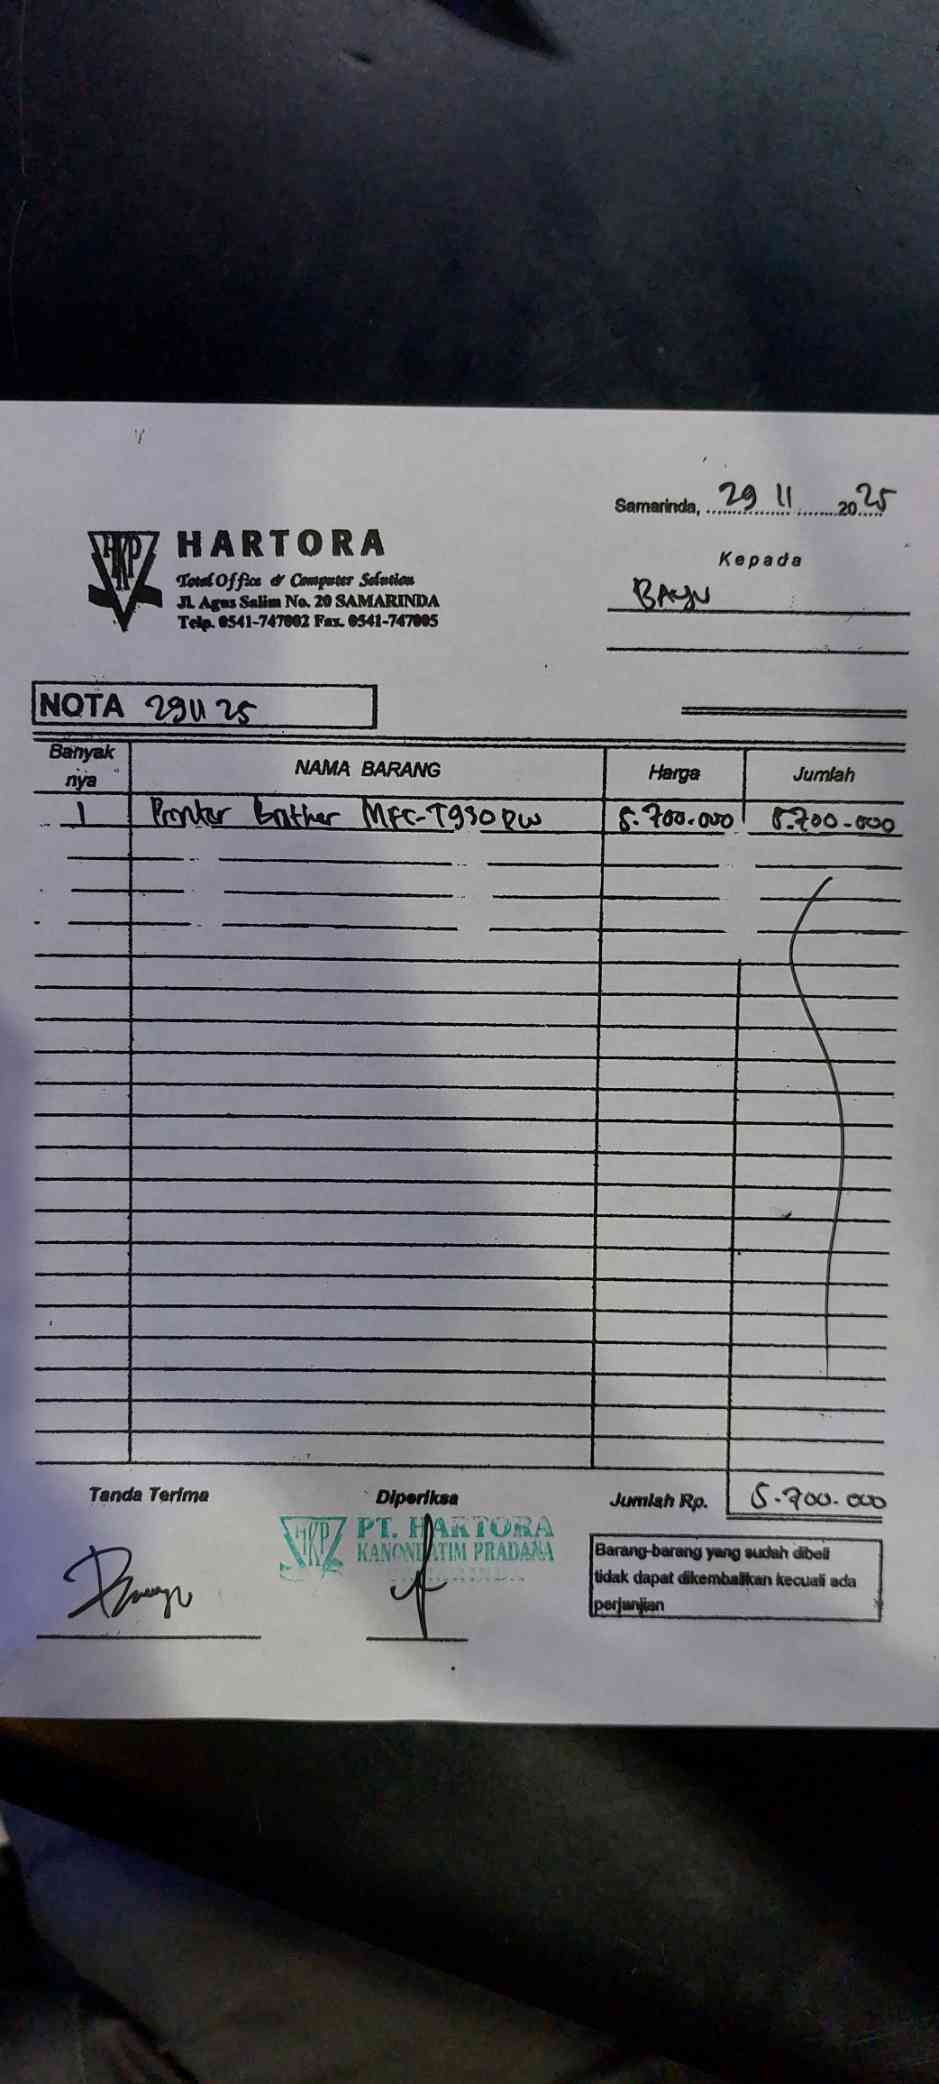 Samarinda, 29 11 2025
HKP
HARTORA
Total Office & Computer Solution
Jl. Agus Salim No. 20 SAMARINDA
Telp. 0541-747002 Fax. 0541-747005
Kepada
BAyu
NOTA 291125
Banyak nya NAMA BARANG Harga Jumlah
1 Printer Brother MFC-T930DW 5.700.000 5.700.000
Tanda Terima Diperiksa Jumlah Rp. 5.700.000
HKP PT. HARTORA
KANONKATIM PRADANA
Barang-barang yang sudah dibeli
tidak dapat dikembalikan kecuali ada
perjanjian